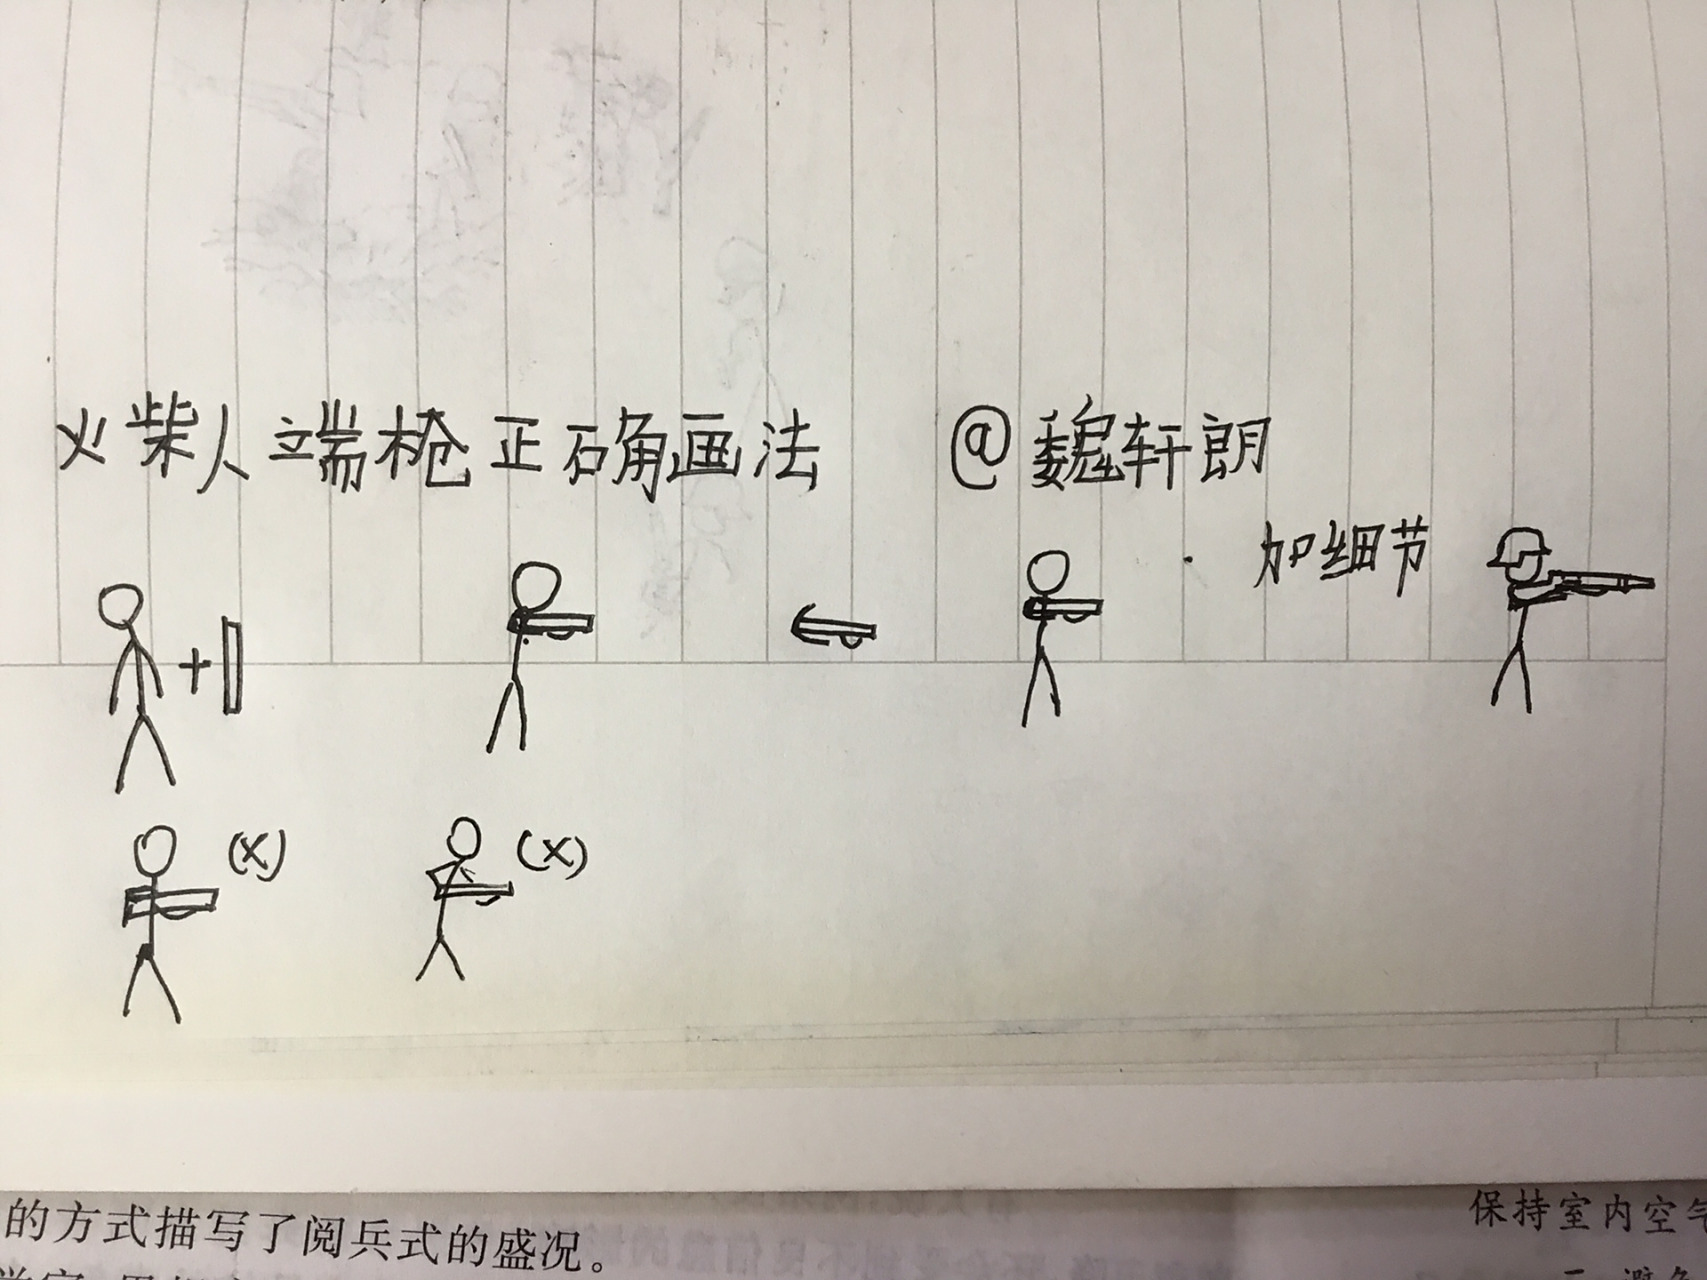 火柴人端枪正确画法 @魏轩朗
加细节
+
(×) (×)
的方式描写了阅兵式的盛况。
保持室内空气